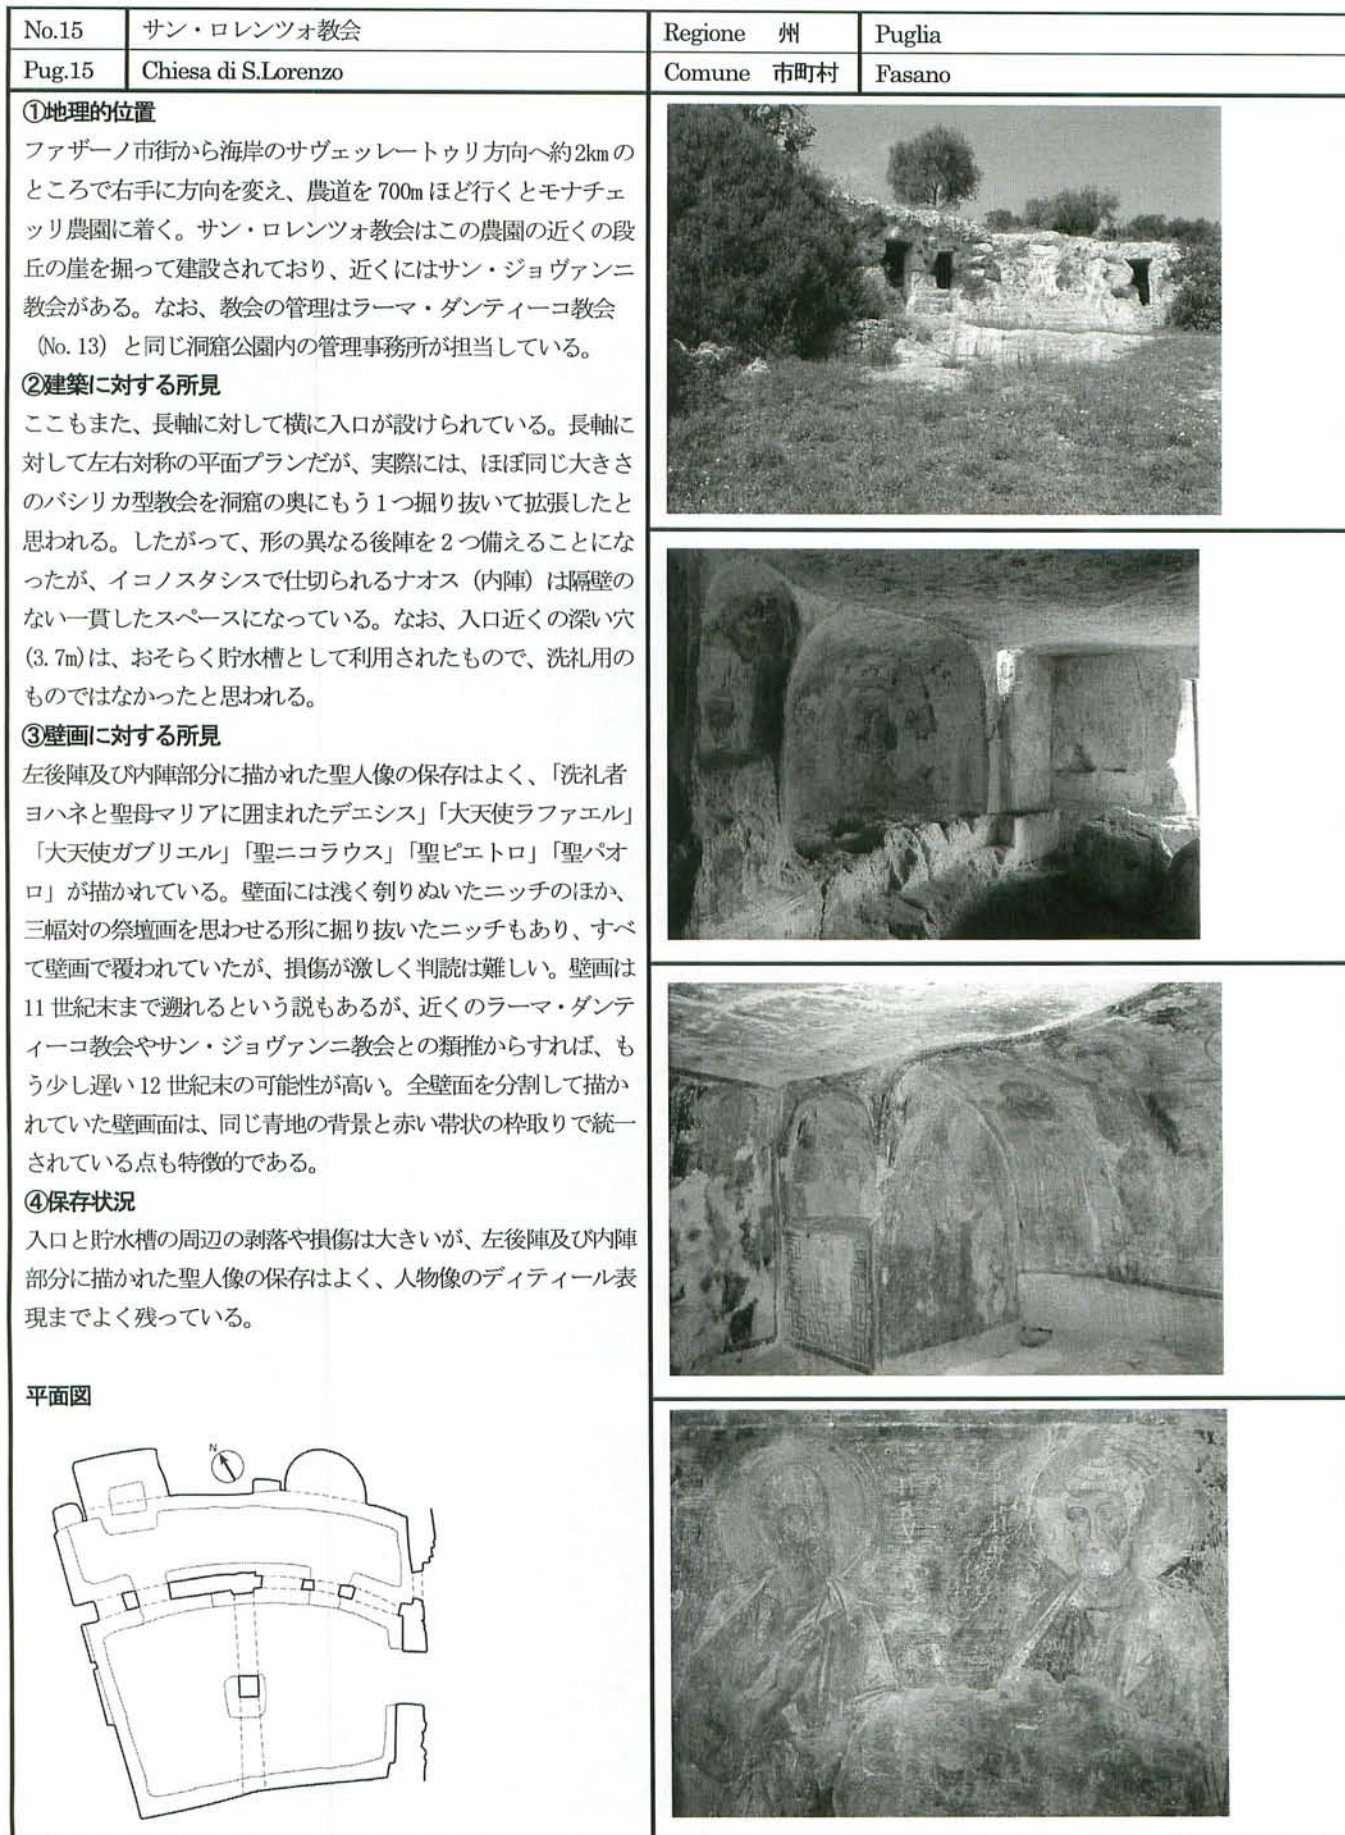 No.15 サン・ロレンツォ教会 Regione 州 Puglia
Pug.15 Chiesa di S.Lorenzo Comune 市町村 Fasano
①地理的位置
ファザーノ市街から海岸のサヴェッレートゥリ方向へ約2kmの
ところで右手に方向を変え、農道を 700m ほど行くとモナチェ
ッリ農園に着く。サン・ロレンツォ教会はこの農園の近くの段
丘の崖を掘って建設されており、近くにはサン・ジョヴァンニ
教会がある。なお、教会の管理はラーマ・ダンティーコ教会
(No. 13) と同じ洞窟公園内の管理事務所が担当している。
②建築に対する所見
ここもまた、長軸に対して横に入口が設けられている。長軸に
対して左右対称の平面プランだが、実際には、ほぼ同じ大きさ
のバシリカ型教会を洞窟の奥にもう1つ掘り抜いて拡張したと
思われる。したがって、形の異なる後陣を2つ備えることにな
ったが、イコノスタシスで仕切られるナオス (内陣) は隔壁の
ない一貫したスペースになっている。なお、入口近くの深い穴
(3.7m)は、おそらく貯水槽として利用されたもので、洗礼用の
ものではなかったと思われる。
③壁画に対する所見
左後陣及び内陣部分に描かれた聖人像の保存はよく、「洗礼者
ヨハネと聖母マリアに囲まれたデエシス」「大天使ラファエル」
「大天使ガブリエル」「聖ニコラウス」「聖ピエトロ」「聖パオ
ロ」が描かれている。壁面には浅く刳りぬいたニッチのほか、
三幅対の祭壇画を思わせる形に掘り抜いたニッチもあり、すべ
て壁画で覆われていたが、損傷が激しく判読は難しい。壁画は
11 世紀末まで遡れるという説もあるが、近くのラーマ・ダンテ
ィーコ教会やサン・ジョヴァンニ教会との類推からすれば、も
う少し遅い 12 世紀末の可能性が高い。全壁面を分割して描か
れていた壁画面は、同じ青地の背景と赤い帯状の枠取りで統一
されている点も特徴的である。
④保存状況
入口と貯水槽の周辺の剥落や損傷は大きいが、左後陣及び内陣
部分に描かれた聖人像の保存はよく、人物像のディティール表
現までよく残っている。
平面図
N